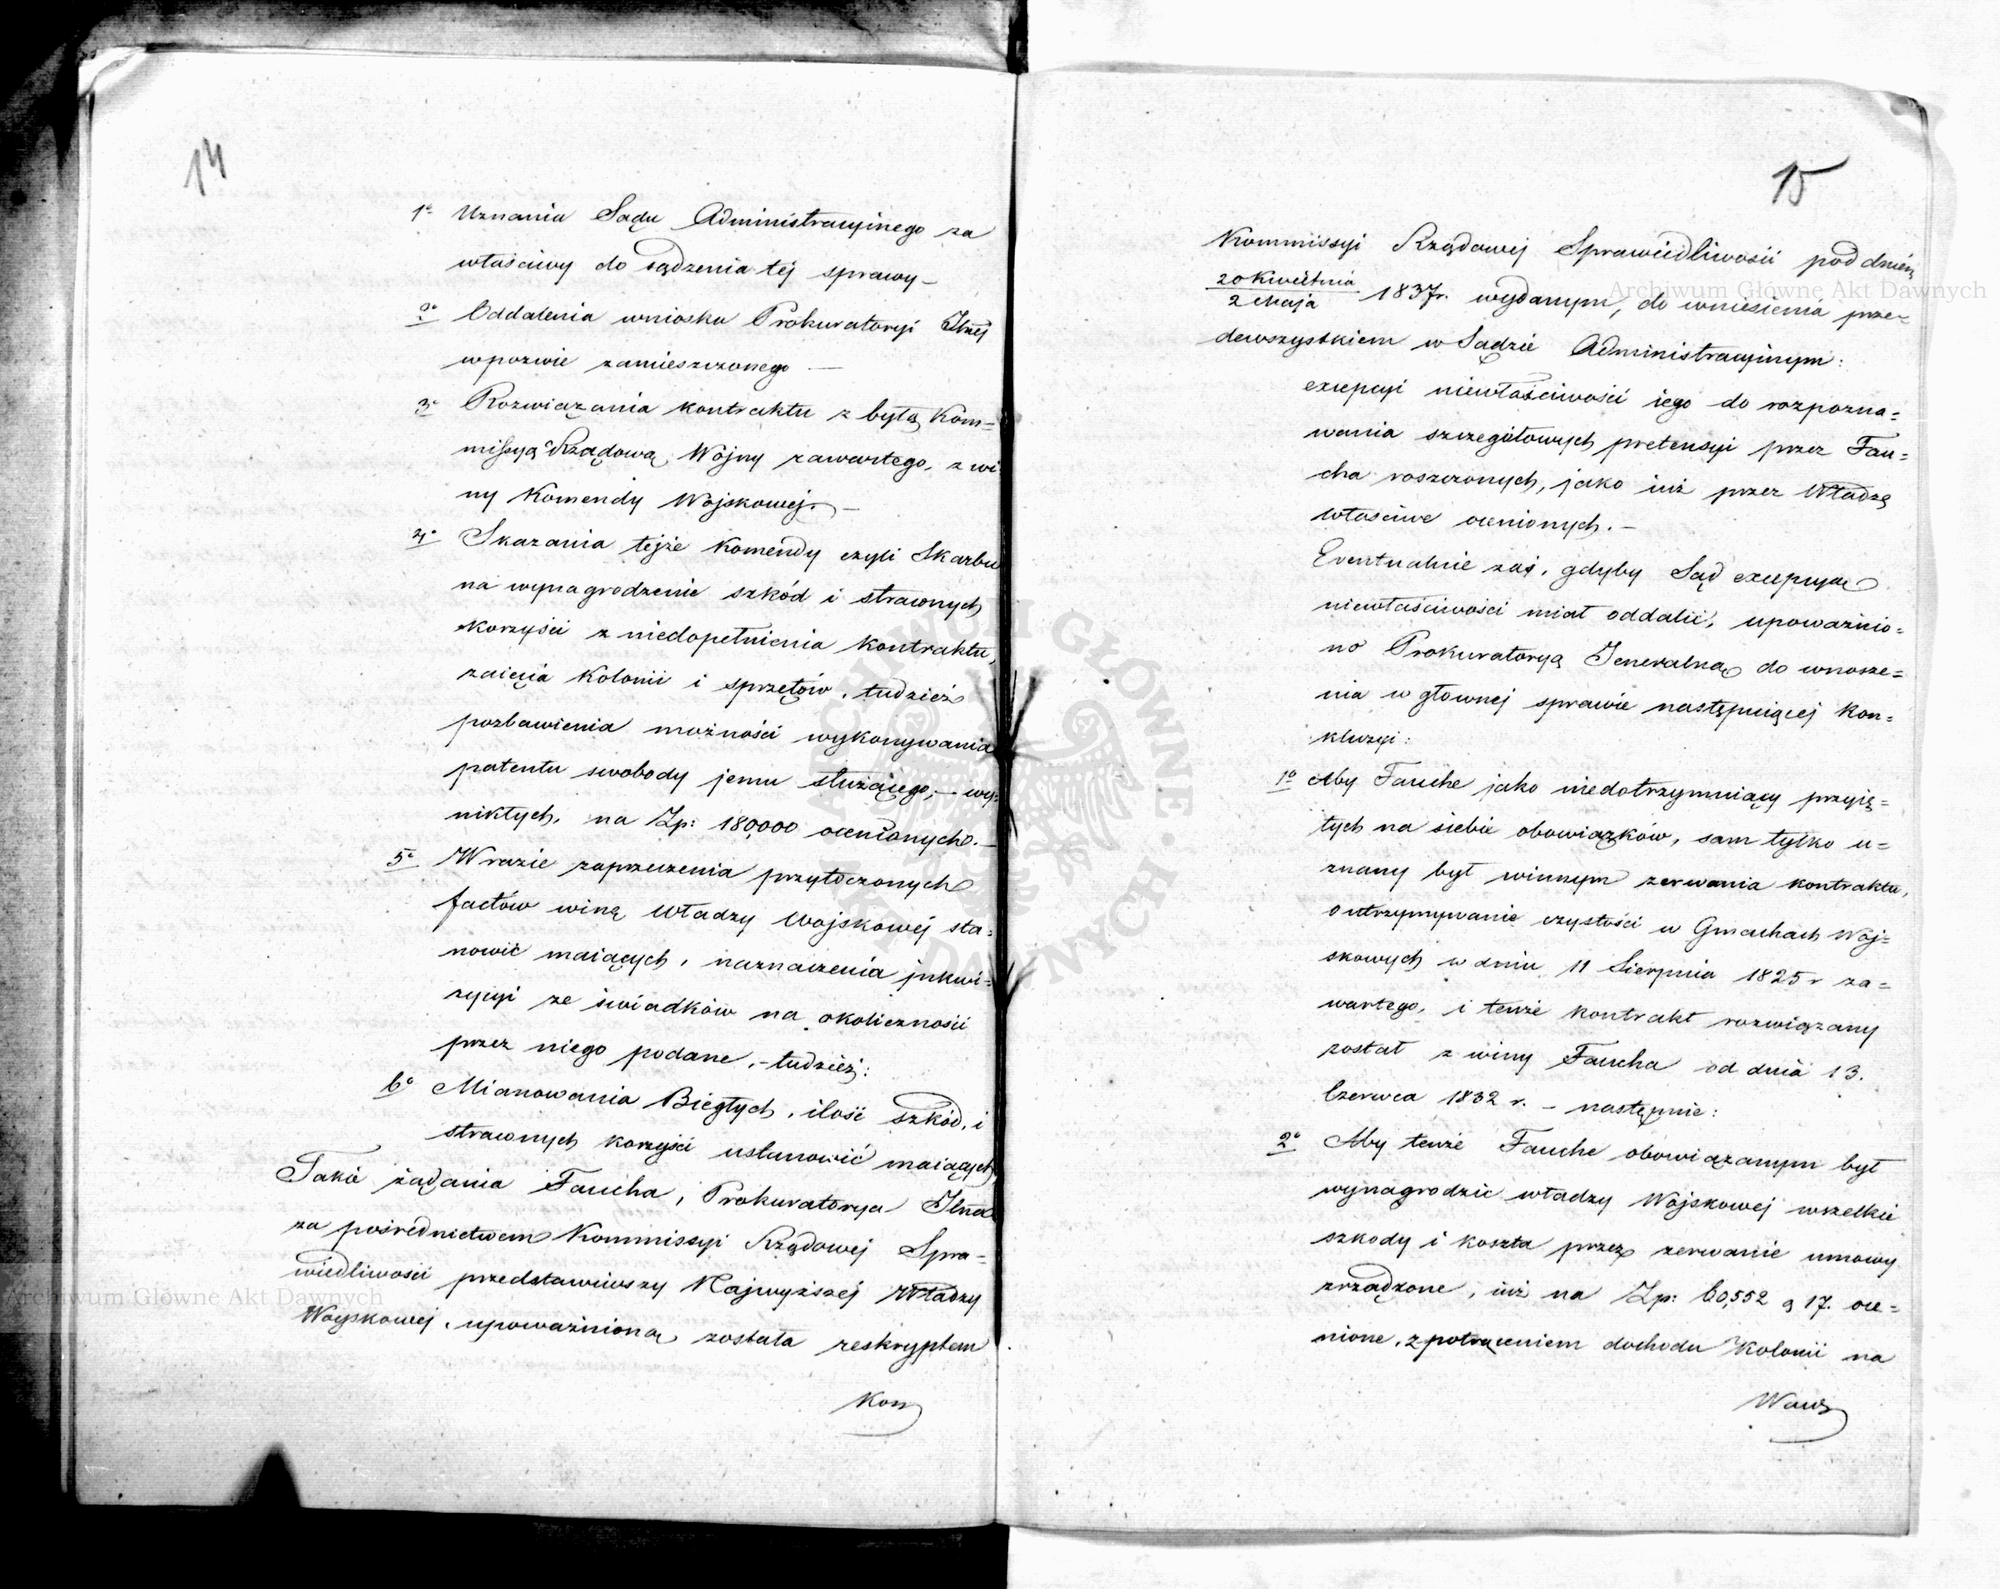 14
1º Uznania Sądu Administracyinego za
właściwy do sądzenia téj sprawy –
2º Oddalenia wniosku Prokuratoryi Jlnéj
w pozwie zamieszczonego —
3º Rozwiązania kontraktu z byłą Kom=
missyą Rządową Wojny zawartego, z wi
ny Komendy Wojskowéj. –
4º Skazania téjże Komendy czyli Skarbu
na wynagrodzenie szkód i straconych
korzyści z niedopełnienia kontraktu,
zaięcia Kolonii i sprzętów, tudzież
pozbawienia możności wykonywania
patentu swobody jemu służącego; – wy=
nikłych, na Zp: 180,000 ocenionych. –
5º W razie zaprzeczenia przytoczonych
factów winę Władzy Wojskowéj sta=
nowić maiących, naznaczenia jnkwi=
zycyi ze świadków na okoliczności
przez niego podane, – tudzież:
6º Mianowania Biegłych, ilość szkód, i
straconych korzyści ustanowić maiących
Takie żądania Faucha, Prokuratorya Jlna
za pośrednictwem Kommissyi Rządowéj Spra=
wiedliwości przedstawiwszy Najwyższéj Władzy
Woyskowéj, upoważnioną została reskryptem
Kom
15
Kommissyi Rządowéj Sprawiedliwości pod dniem
20 Kwietnia
2 Maja 1837r. wydanym, do wniesienia prze=
dewszystkiem w Sądzie Administracyinym:
excepcyi niewłaściwości iego do rozpozna=
wania szczegółowych pretensyi przez Fau=
cha roszczonych, jako iuż przez Władzę
właściwe ocenionych. –
Eventualnie zaś, gdyby Sąd excepcyą
niewłaściwości miał oddalić, upoważnio=
no Prokuratoryą Jeneralną do wnosze=
nia w głownéj sprawie następuiącéj kon=
kluzyi:
1º Aby Fauche jako niedotrzymuiący przyię=
tych na siebie obowiązków, sam tylko u=
znany był winnym zerwania kontraktu,
o utrzymywanie czystości w Gmachach Woj=
skowych w dniu 11 Sierpnia 1825 r za=
wartego, i tenże kontrakt rozwiązany
został z winy Faucha od dnia 13.
Czerwca 1832 r. – następnie:
2º Aby tenże Fauche obowiązanym był
wynagrodzić władzy Wojskowéj wszelkie
szkody i koszta przez zerwanie umowy
zrządzone, iuż na Zp: 60,552 g 17. oce=
nione, z potrąceniem dochodu Kolonii na
Archiwum Główne Akt Dawnych
Archiwum Główne Akt Dawnych
ARCHIWUM GŁÓWNE AKT DAWNYCH